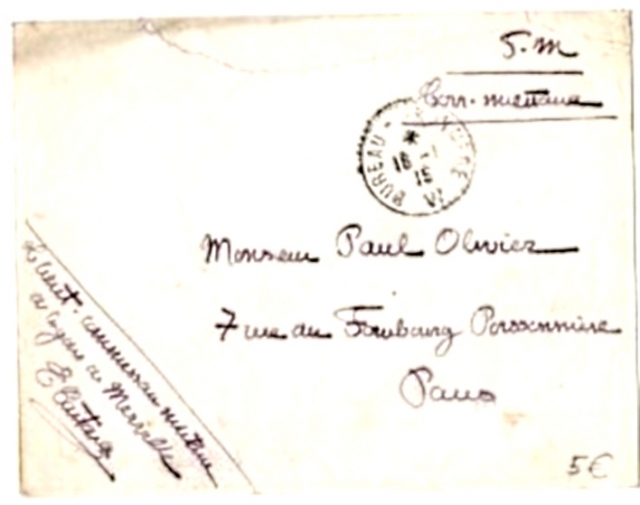 S.M
Corr. militaire
BUREAU
*
16 -1
15
Monsieur Paul Olivier
7 rue du Faubourg Poissonnière
Paris
Le Lieut. commissaire militaire
de Merville
5€